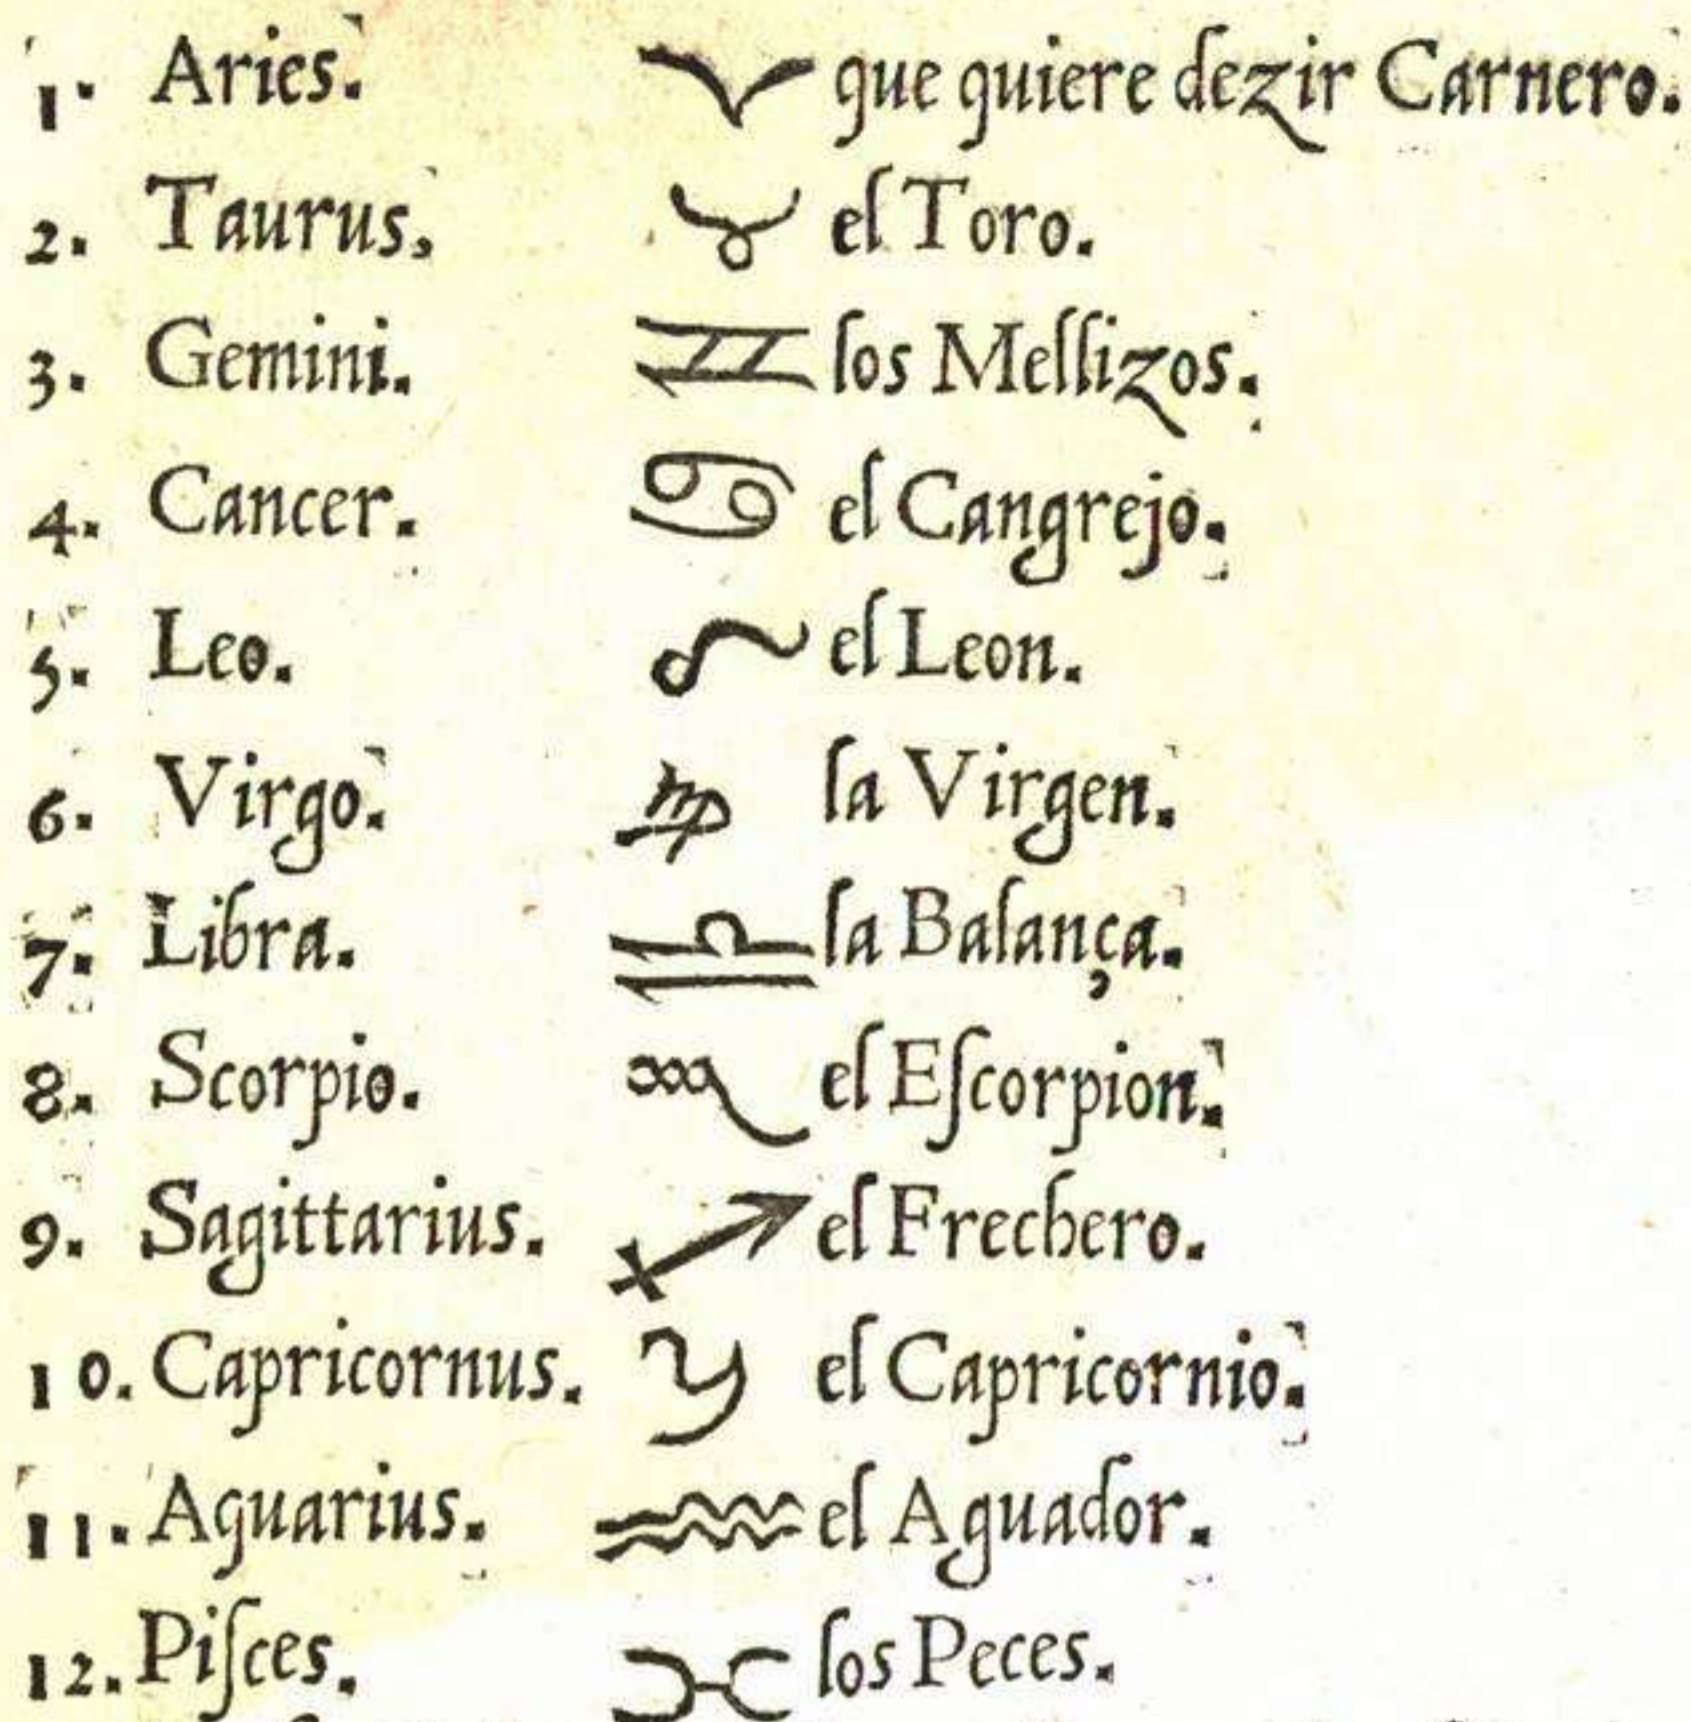 1. Aries. ♈ que quiere dezir Carnero.
2. Taurus, ♉ el Toro.
3. Gemini. ♊ los Mellizos.
4. Cancer. ♋ el Cangrejo.
5. Leo. ♌ el Leon.
6. Virgo. ♍ la Virgen.
7. Libra. ♎ la Balança.
8. Scorpio. ♏ el Eſcorpion.
9. Sagittarius. ♐ el Frechero.
10. Capricornus. ♑ el Capricornio.
11. Aquarius. ♒ el Aguador.
12. Piſces. ♓ los Peces.